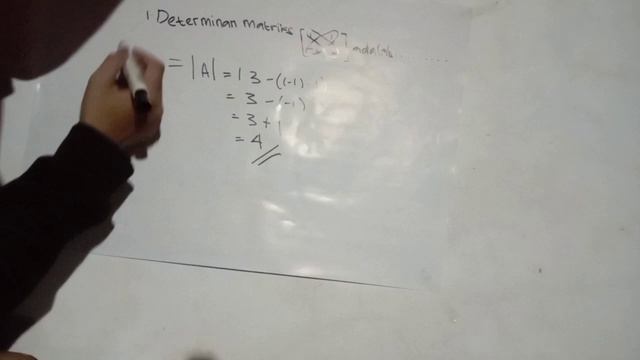 1 Determinan matriks [ ] adalah........
= |A| = 1 3 - ((-1) 1)
= 3 - (-1)
= 3 + 1
= 4